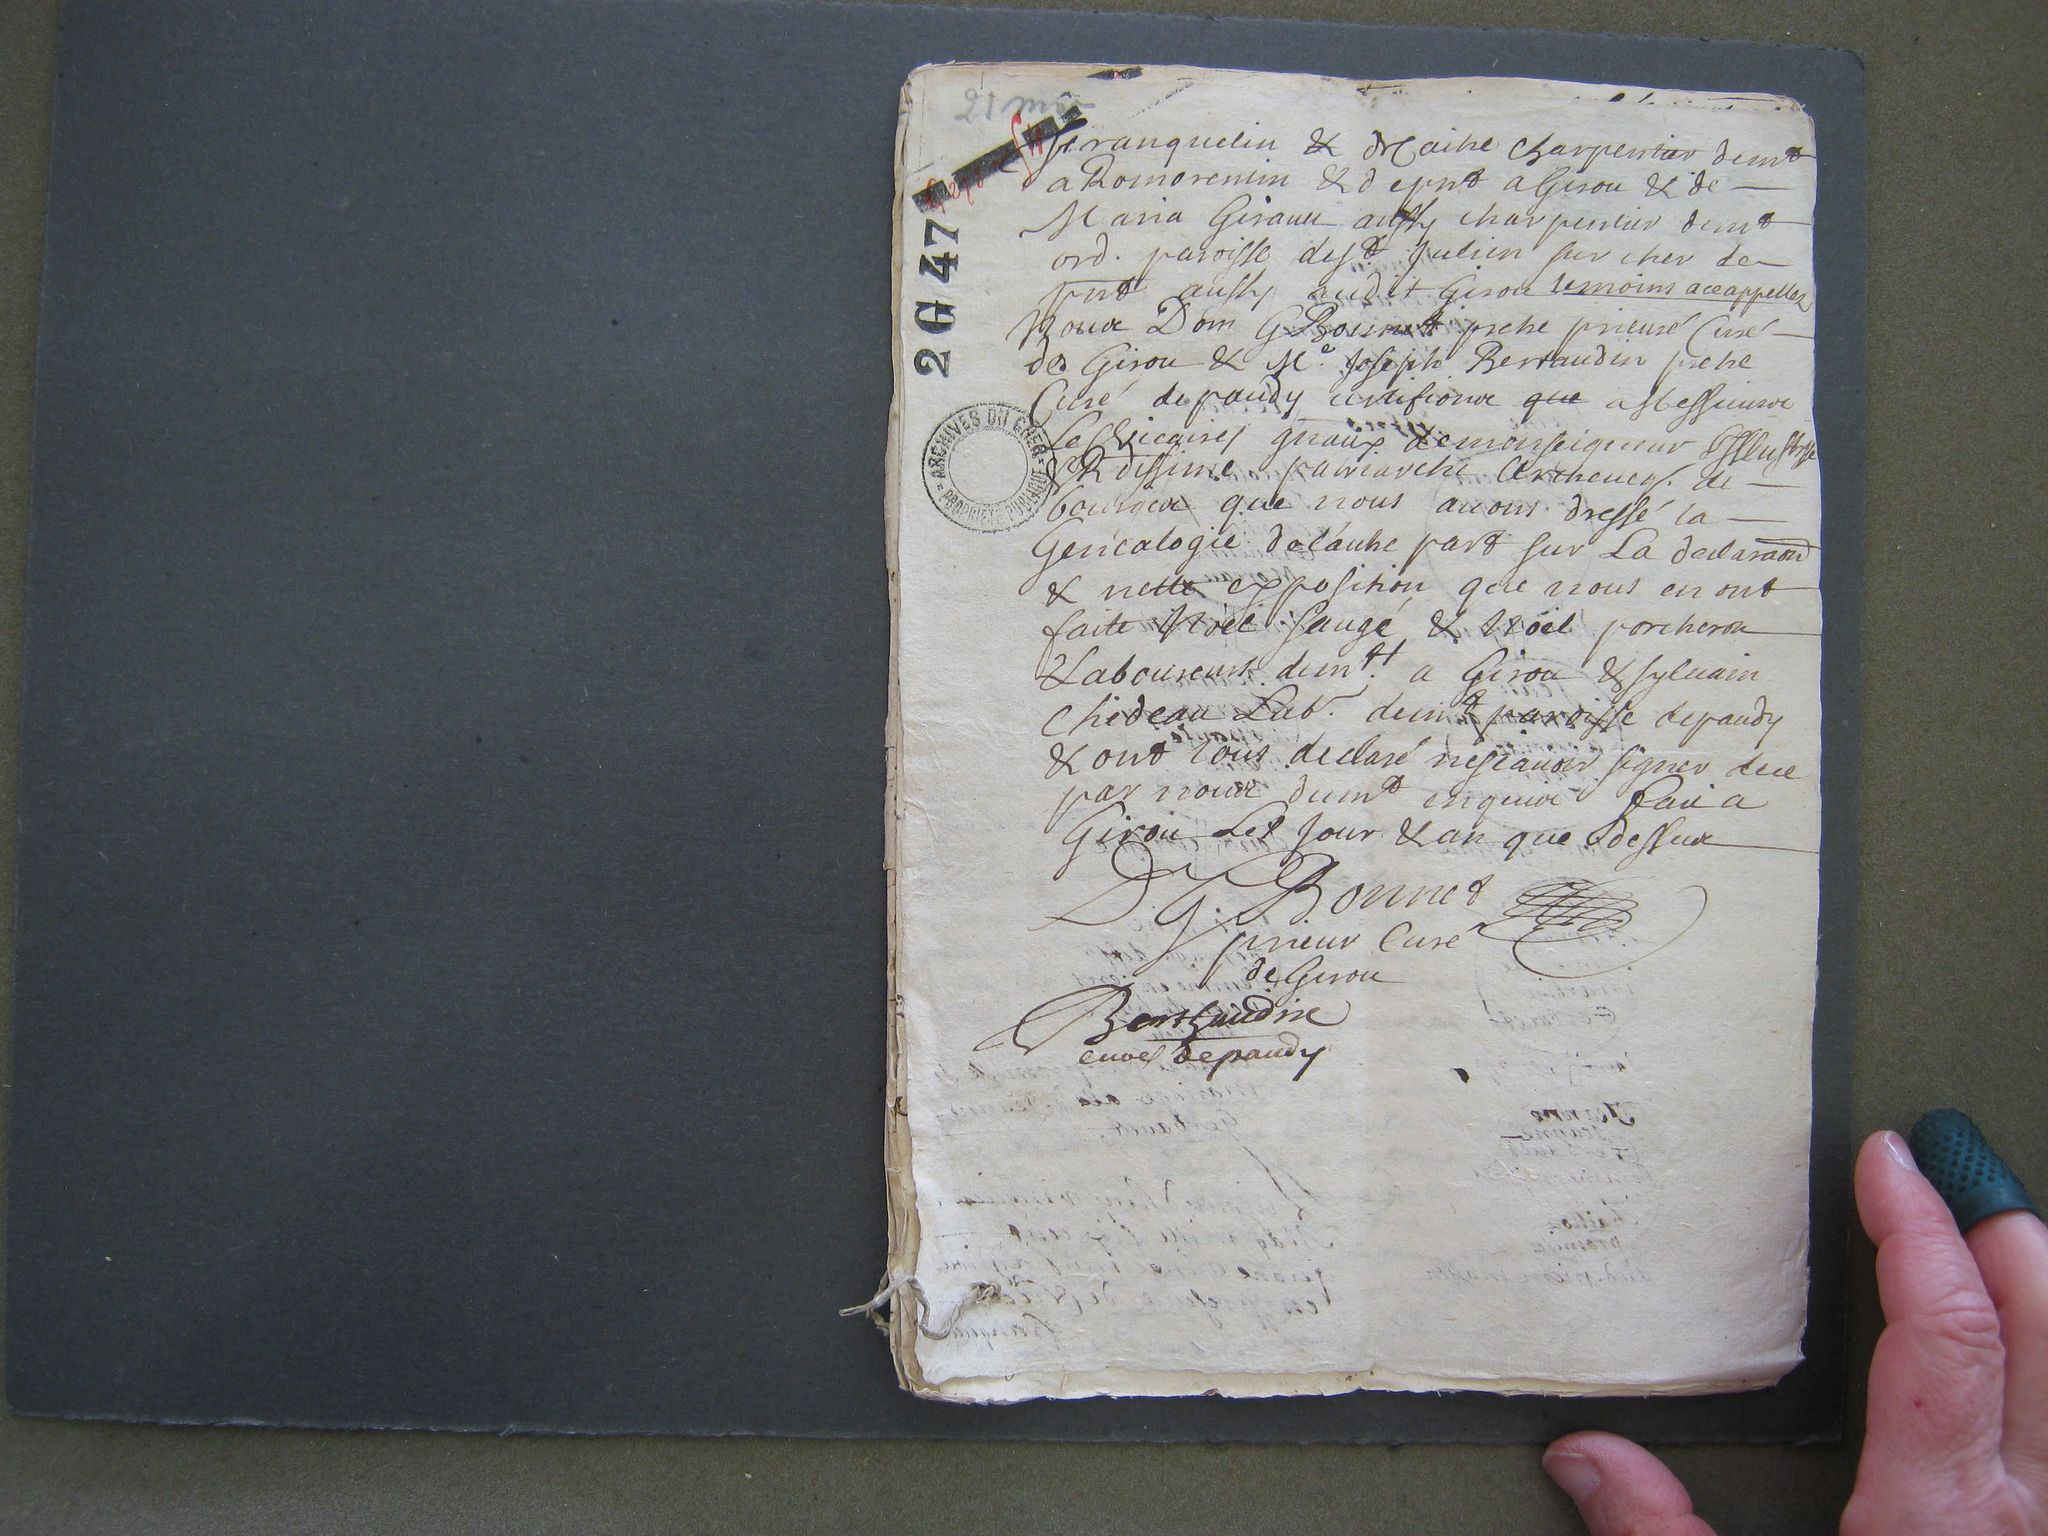 21 mai
franquelin & Maitre Charpentier demt
a Romorentin & de prnt a Girou & de
Maria Giraud aussy charpentier demt
ord. paroisse de st Julien sur cher de
prnt aussy audit Girou temoins a ce appellez
Nous Dom G Bonnet prebtre prieur Curé
de Girou & Me Joseph Bertaudin prebtre
Curé de paudy certifions que a Messieurs
Les Vicaires gnaux de monseigneur Illustrisse
Rdissime patriarche Archeueq. de
bourges que nous auons dressé la
Genealogie de l'autre part sur La declaraon
& nette exposition que nous en ont
faite Noël saugé & Noël porcheron
Laboureurs demt. a Girou & syluain
Chideau Lab. demt paroisse de paudy
& ont tous declaré ne scauoir signer de ce
par nous dumt enquis fait a
Girou Les Jour & an que dessus
D G. Bonnet
prieur Curé
de Girou
Bertaudin
curé de paudy
2G 47
ARCHIVES DU CHER
PROPRIÉTÉ PUBLIQUE